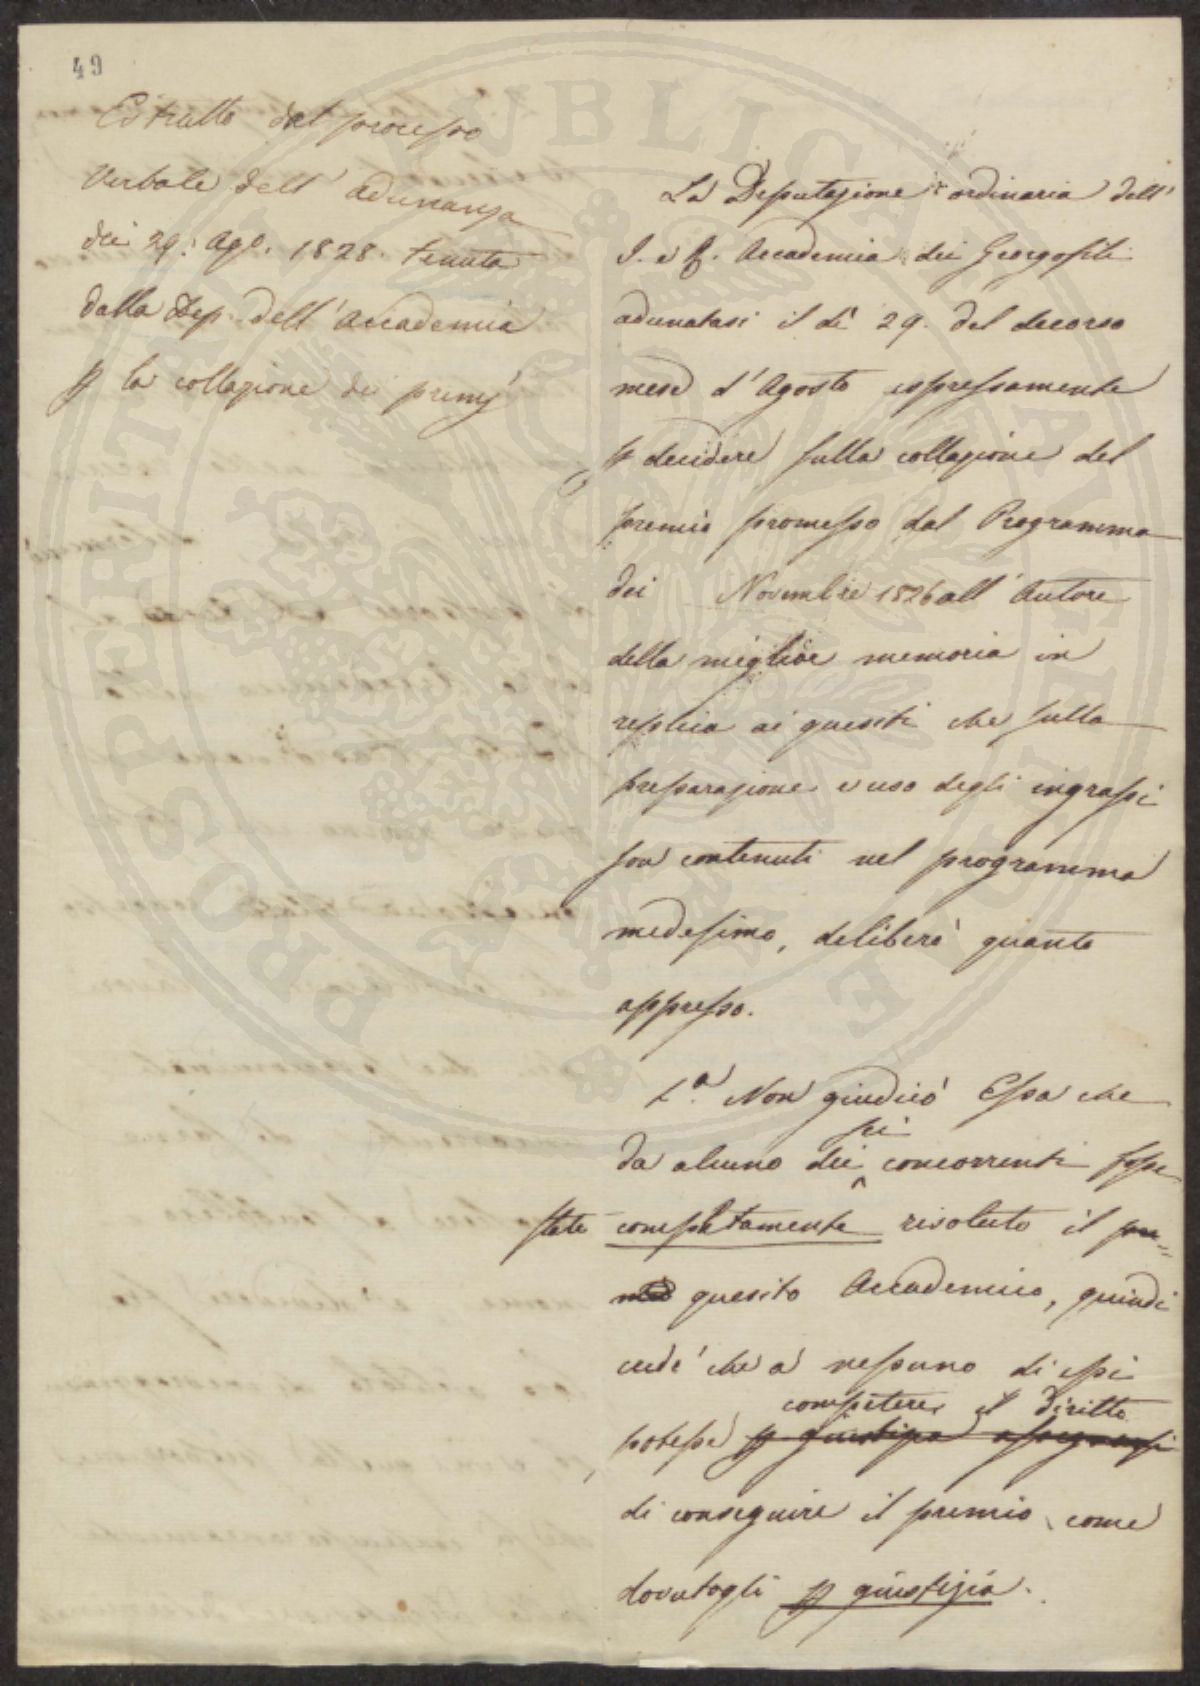 49
Estratto dal processo
Verbale dell' adunanza
dei 29. Ago. 1828. tenuta
dalla Dep. dell' Accademia
p la collazione dei premj
La Deputazione ordinaria dell'
I. e R. Accademia dei Georgofili
adunatasi il dì 29. del decorso
mese d'Agosto espressamente
p decidere sulla collazione del
premio promesso dal Programma
dei Novembre 1826 all' Autore
della miglior memoria in
replica ai quesiti che sulla
preparazione e uso degli ingrassi
son contenuti nel programma
medesimo, deliberò quanto
appresso.
1.° Non giudicò Essa che
sei
da alcuno dei concorrenti fosse
stato completamente risoluto il pri=
mo quesito Accademico, quindi
credè che a nessuno di essi
competere il diritto
potesse p giustizia assegnarsi
di conseguire il premio, come
dovutogli p giustizia.
PROSPERITATI PUBLICAE AUGENDAE